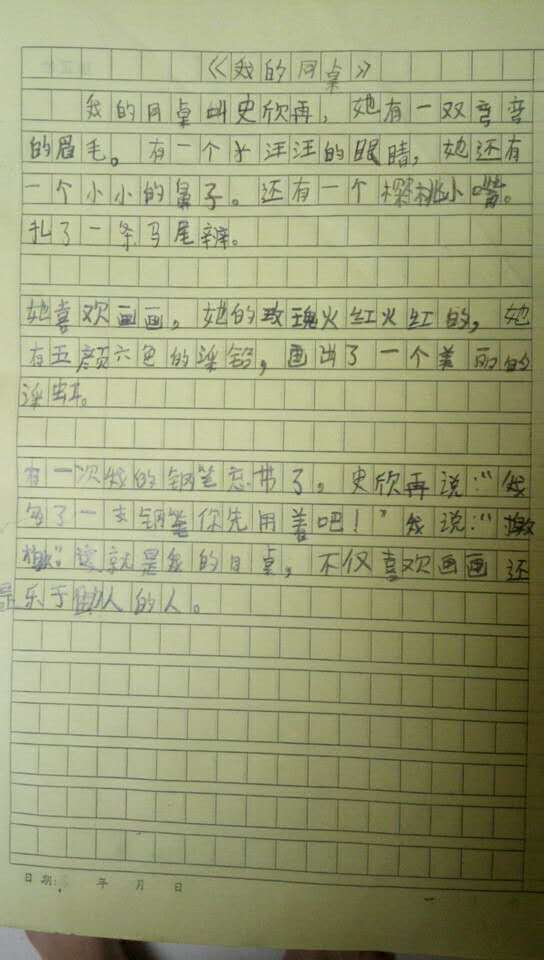 《我的同桌》
我的同桌叫史欣再，她有一双弯弯
的眉毛。有一个水汪汪的眼睛，她还有
一个小小的鼻子。还有一个樱桃小嘴。
扎了一条马尾辫。
她喜欢画画，她的玫瑰火红火红的，她
有五颜六色的彩铅，画出了一个美丽的
彩虹。
有一次我的钢笔忘带了。史欣再说：“我
多了一支钢笔你先用着吧！”我说：“谢
谢”。这就是我的同桌，不仅喜欢画画还
是乐于助人的人。
日期： 年 月 日